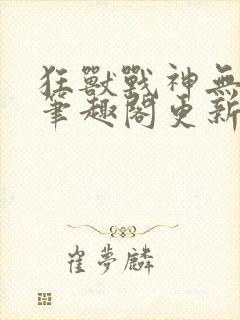 狂獸戰神無
筆趣閣更新
崔夢麟